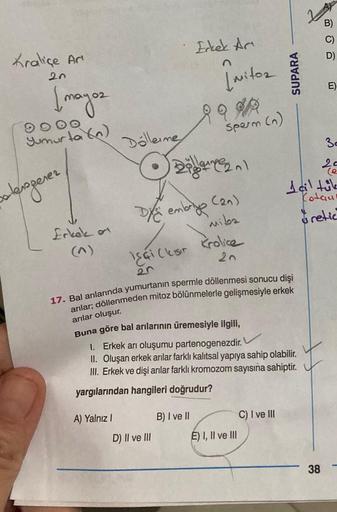 Kraliçe Arı
2n
mayoz
yumurta (n)
Erkek Arı
n
mitoz
sperm (n)
Döllenme
Dişi embriyo (2n)
mitoz
Erkek arı
(n)
İşçi (kısır
2n
Kraliçe
2n
17. Bal arılarında yumurtanın spermle döllenmesi sonucu dişi
arılar; döllenmeden mitoz bölünmelerle gelişmesiyle erkek
arılar oluşur.
Buna göre bal arılarının üremesiyle ilgili,
I. Erkek arı oluşumu partenogenezdir.
II. Oluşan erkek arılar farklı kalıtsal yapıya sahip olabilir.
III. Erkek ve dişi arılar farklı kromozom sayısına sahiptir.
yargılarından hangileri doğrudur?
A) Yalnız I
B) I ve II
C) I ve III
D) II ve III
E) I, II ve III
38
SUPARA
B)
C)
D)
E)